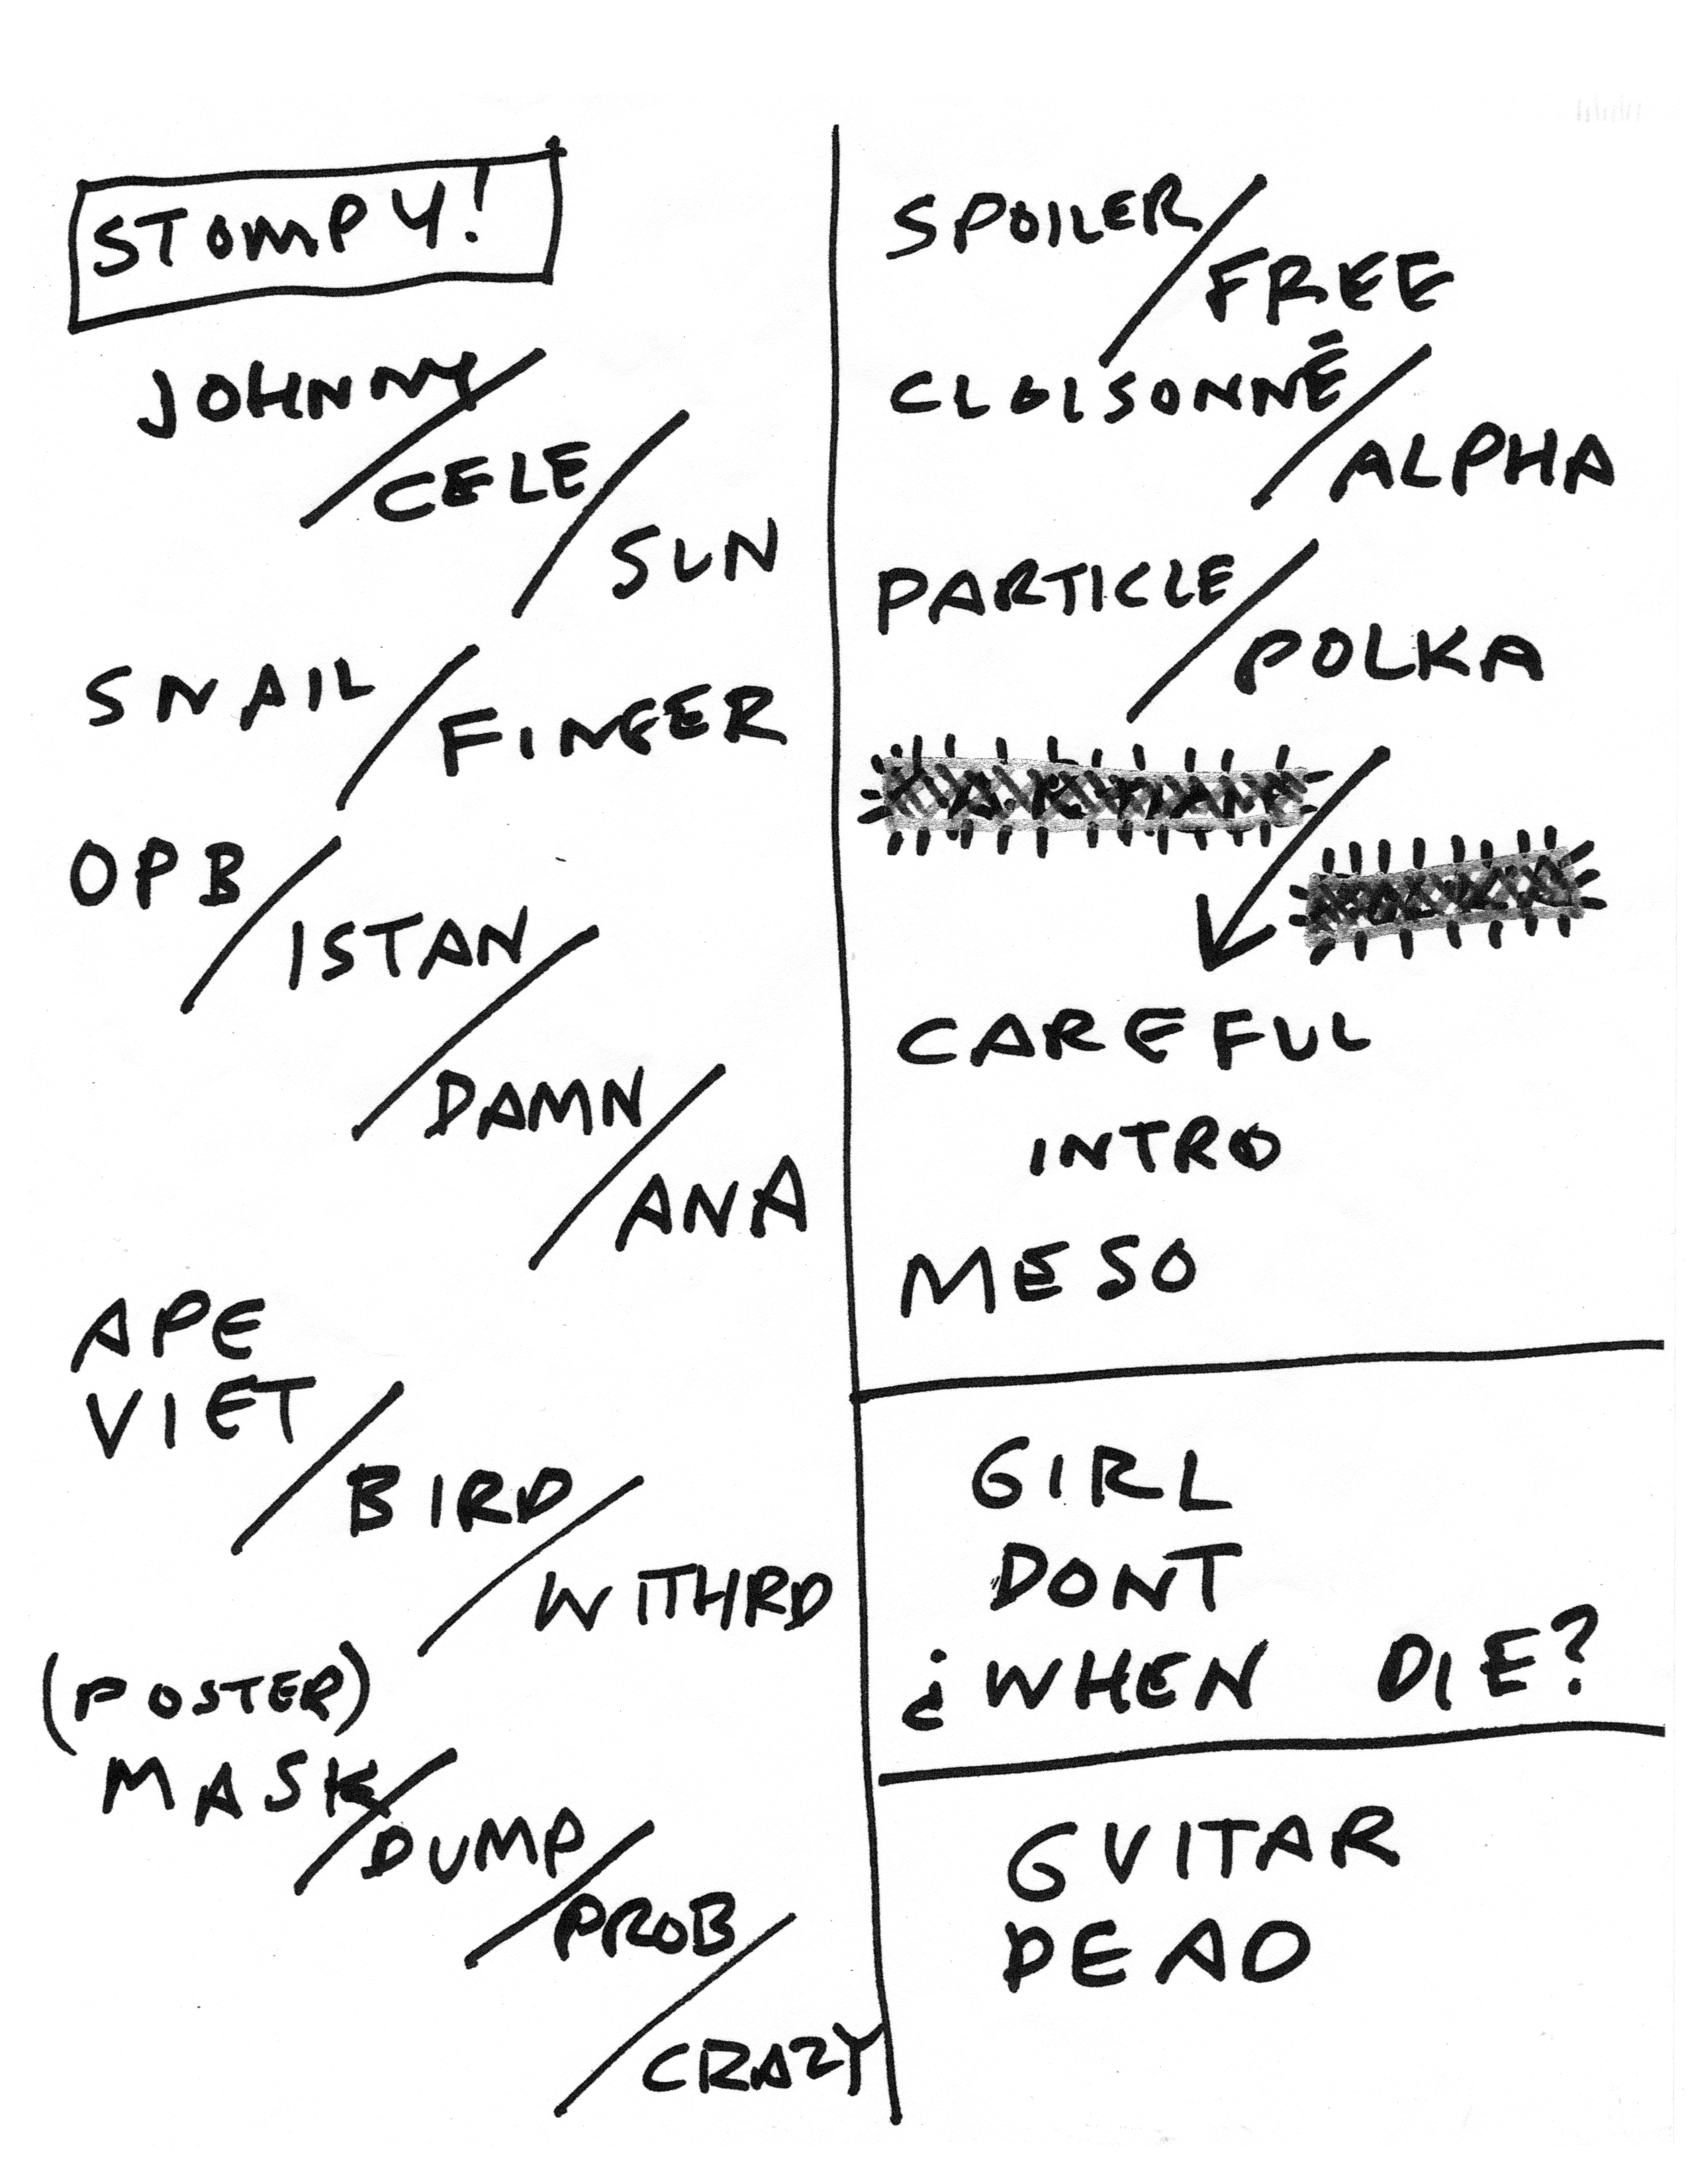 STOMPY!
JOHNNY/
CELE/
SUN
SNAIL/
FINGER
OPB/
ISTAN/
DAMN/
ANA
APE
VIET/
BIRD/
WITHRD
(POSTER)
MASK/
DUMP/
PROB/
CRAZY
SPOILER/
FREE
CLOISONNÉ/
ALPHA
PARTICLE/
POLKA
CAREFUL
INTRO
MESO
GIRL
DONT
¿WHEN DIE?
GUITAR
DEAD